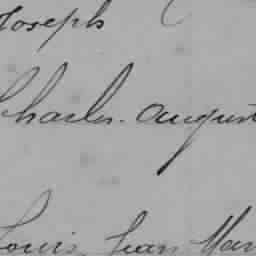 Joseph
Charles. august
Louis Jean Mari